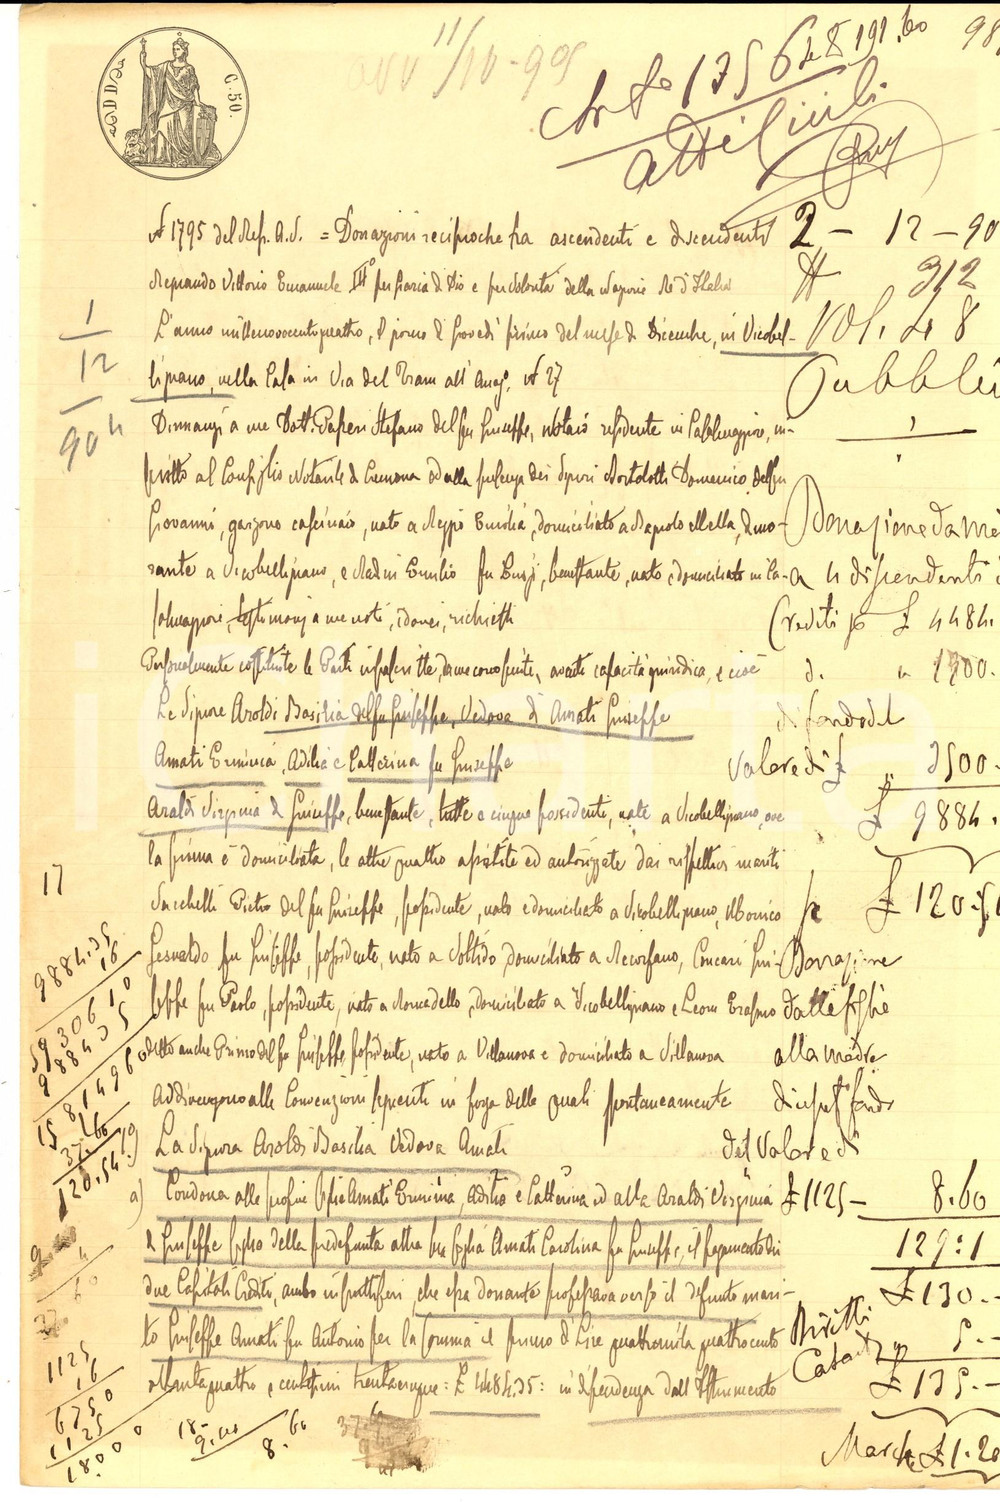 ADDì
C. 50.
11/10-995
N° 1756
Atti Civili
98
N° 1795 del Rep. A.S. = Donazioni reciproche fra ascendenti e discendenti
Regnando Vittorio Emanuele III° per Grazia di Dio e per Volontà della Nazione Re d'Italia
L'anno millenovecentoquattro, il giorno di Giovedì primo del mese di Dicembre, in Vicobel-
lignano, nella Casa in Via del Tram all' Anag. N° 27
Dinnanzi a me Dott. Stefano del fu Giuseppe, notaio residente in Casalmaggiore, in-
scritto al Consiglio Notarile di Cremona ed alla presenza dei Signori Bortolotti Domenico del fu
Giovanni, garzone cascinaio, nato a Reggio Emilia, domiciliato a Bagnolo Mella, dimo-
rante a Vicobellignano, e Madini Emilio fu Luigi, benestante, nato e domiciliato in Ca-
salmaggiore, testimonj a me noti, idonei, richiesti
Personalmente costituite le Parti infrascritte, da me conosciute, aventi capacità giuridica, e cioè
Le Signore Araldi Basilia del fu Giuseppe, Vedova di Amati Giuseppe
Amati Erminia, Adilia e Catterina fu Giuseppe
Araldi Virginia di Giuseppe, benestante, tutte e cinque possidenti, nate a Vicobellignano, ove
la prima è domiciliata, le altre quattro assistite ed autorizzate dai rispettivi mariti
Sacchelli Pietro del fu Giuseppe, possidente, nato e domiciliato a Vicobellignano,
Gesualdo fu Giuseppe, possidente, nato a Voltido, domiciliato a Recorfano, Concari Giu-
seppe fu Paolo, possidente, nato a Roncadello, domiciliato a Vicobellignano e Leoni Erasmo
detto anche Primo del fu Giuseppe, possidente, nato a Villanova e domiciliato a Villanova
Addivengono alle Convenzioni seguenti in forza delle quali spontaneamente
1°) La Signora Araldi Basilia Vedova Amati
a) Condona alle proprie figlie Amati Erminia, Adilia e Catterina ed alla Araldi Virginia
di Giuseppe figlia della predefunta altra sua figlia Amati Carolina fu Giuseppe, il pagamento di
due Capitali Crediti, ambo infruttiferi, che essa donante professava verso il defunto mari-
to Giuseppe Amati fu Antonio per la somma il primo di Lire quattromila quattrocento
ottantaquattro e centesimi trentacinque: £ 4484.35: in dipendenza dall' Istrumento
2 - 12 - 90
N 912
Vol. 48
Pubblici
1
Donazione da ma
a 4 discendenti
Crediti fo £ 4484.
d. " 1900.
di fondo del
Valore di £ " 3500.
£ 9884.
£ 120.51
Donazione
dalle figlie
alla madre
di ispet fondi
del Valore di
£ 1125 - 8.60
129:1
£ 130.-
Diritti
Catast 5.-
£ 135.-
Marche £ 1.20
1
12
904
17
9884.35
16
5930610
988435
15814960
37.60
120.54
1125
16
6750
1125
18.000
18-
8.60
37.6